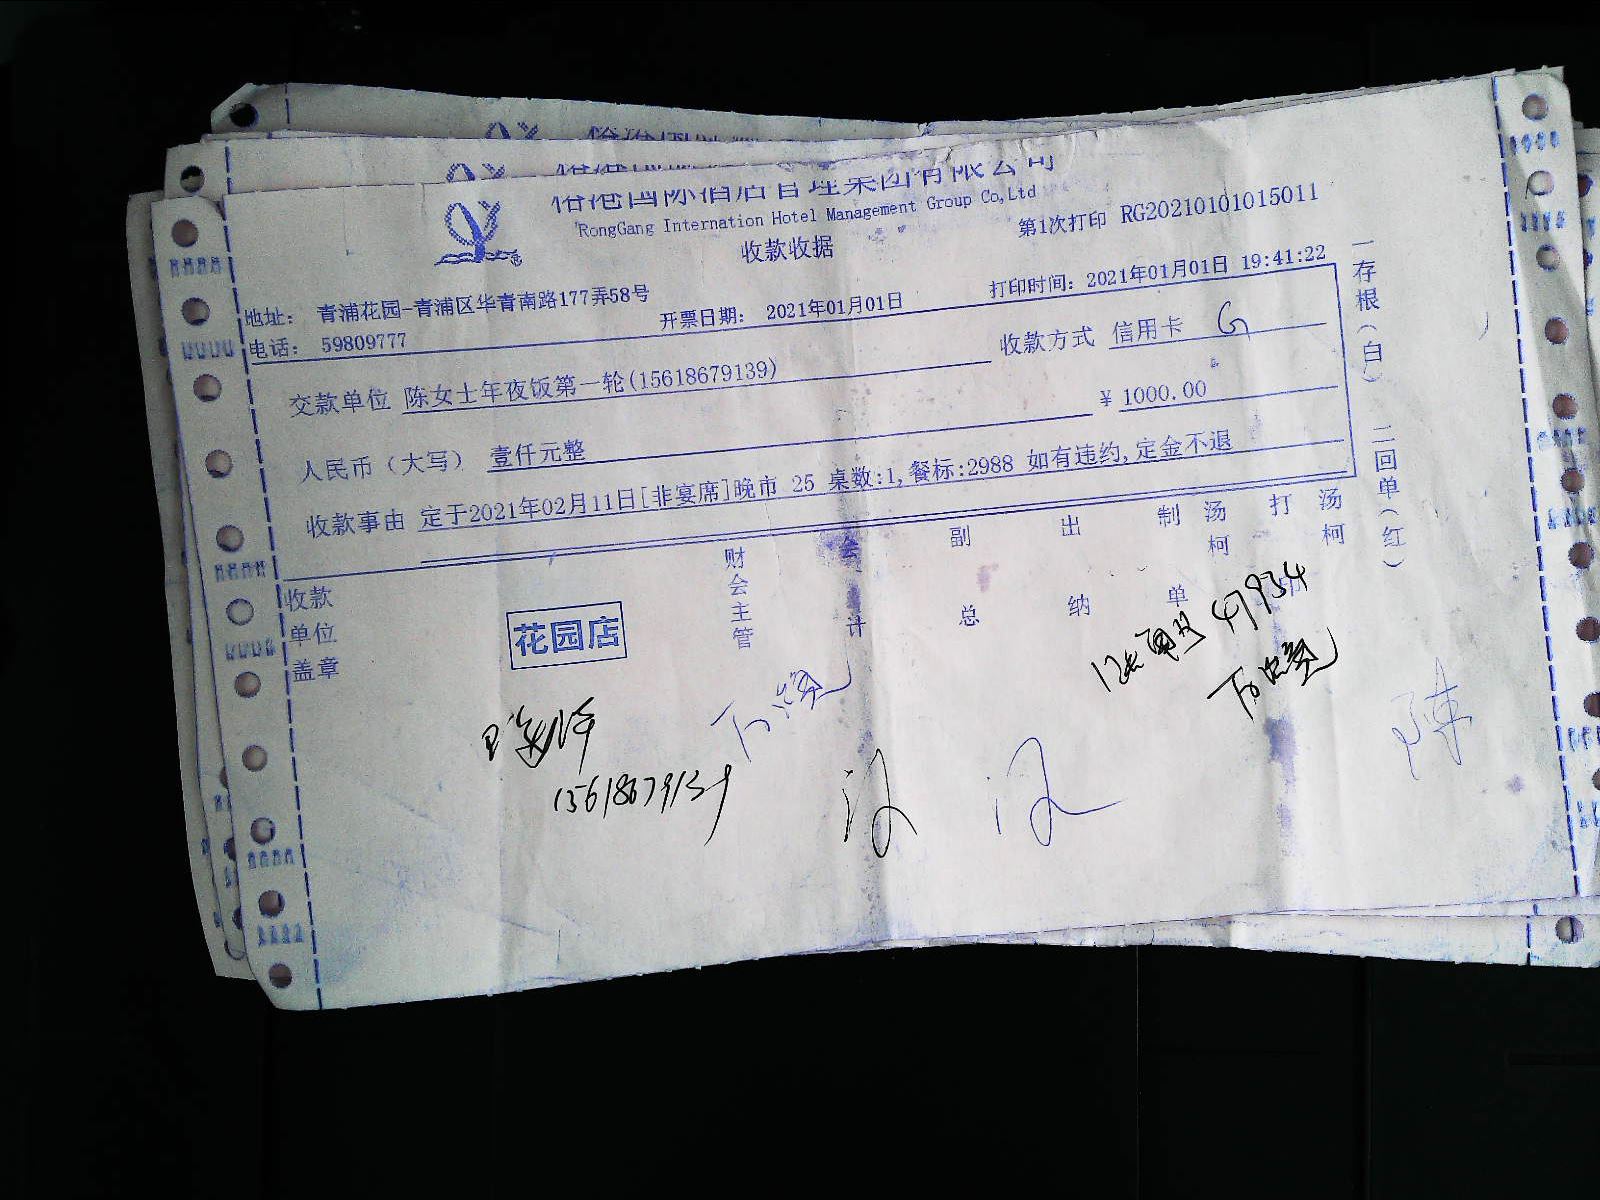 俗港国际酒店管理集团有限公司
RongGang Internation Hotel Management Group Co,Ltd
收款收据
第1次打印 RG20210101015011
地址: 青浦花园-青浦区华青南路177弄58号
电话: 59809777
开票日期: 2021年01月01日
打印时间: 2021年01月01日 19:41:22
交款单位 陈女士年夜饭第一轮(15618679139)
收款方式 信用卡 G
人民币(大写) 壹仟元整
¥ 1000.00
收款事由 定于2021年02月11日[非宴席]晚市 25 桌数:1,餐标:2988 如有违约,定金不退
收款单位盖章
花园店
财会主管
会计
副总
出纳
制单
汤柯
打印
汤柯
一存根(白) 二回单(红)
47934
15618679139
陈